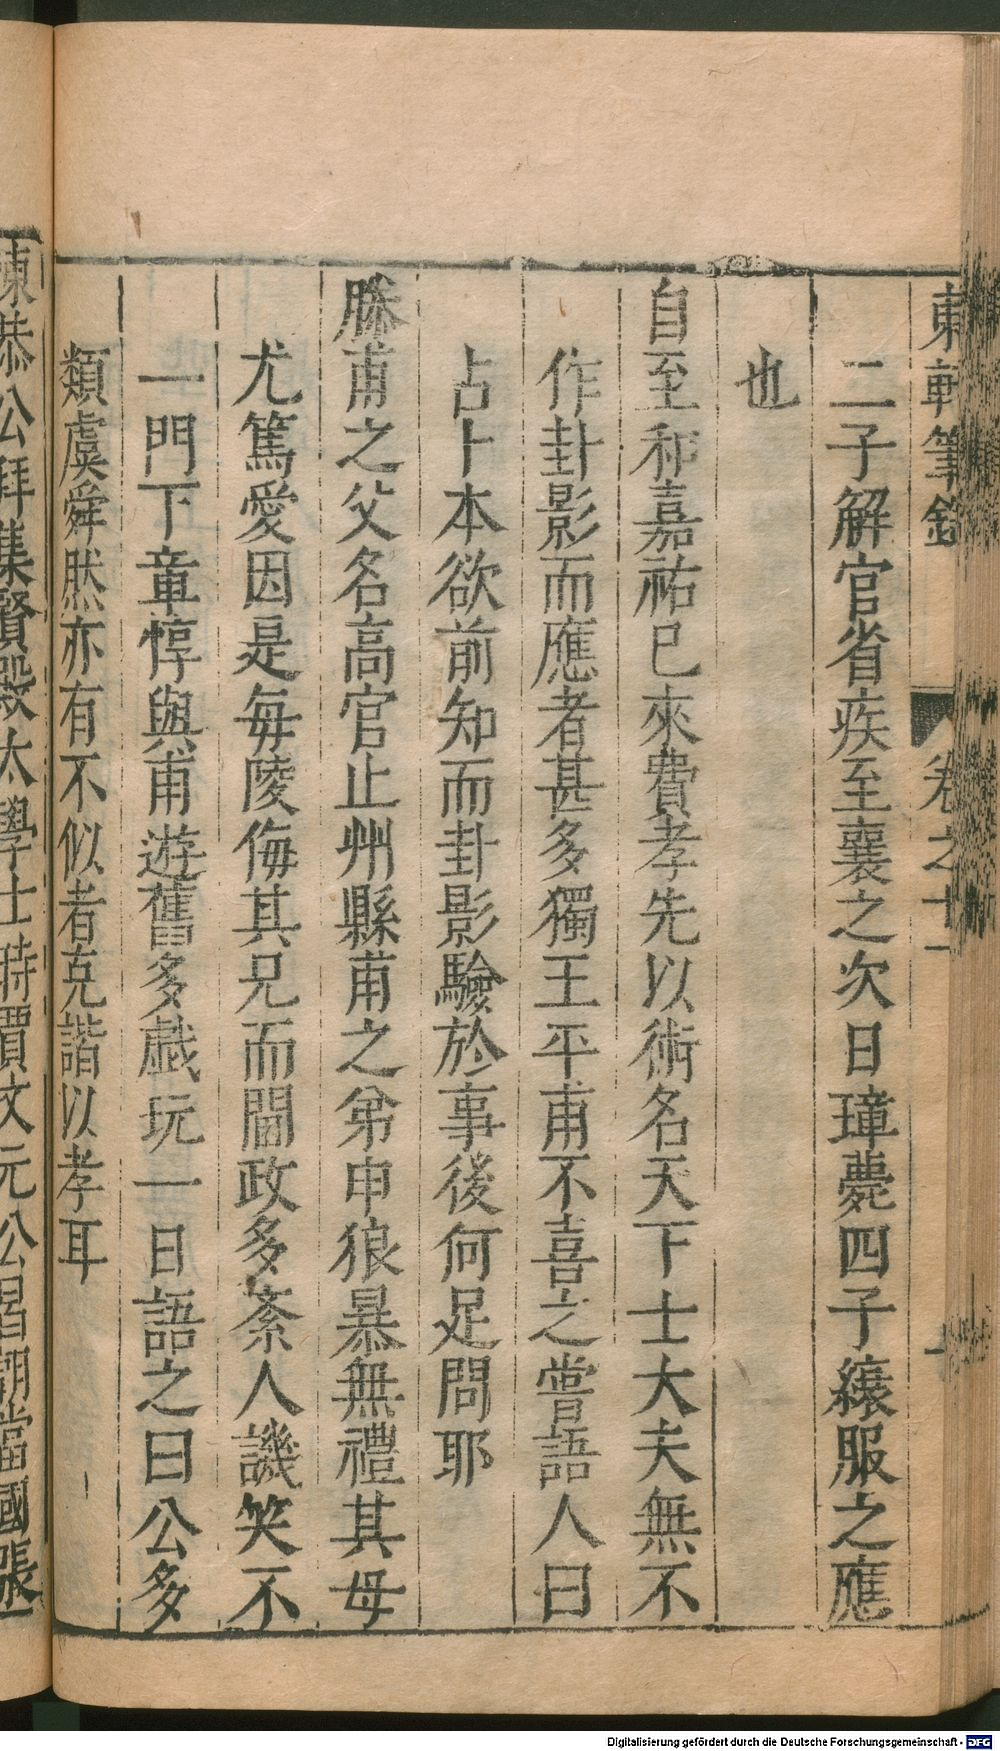 東軒筆錄 卷之十一 一
二子解官省疾至襄之次日璋薨四子縗服之應
也
自至和嘉祐已來費孝先以術名天下士大夫無不
作卦影而應者甚多獨王平甫不喜之嘗語人曰
占卜本欲前知而卦影驗於事後何足問耶
滕甫之父名高官止州縣甫之弟申狼暴無禮其母
尤篤愛因是毎陵侮其兄而閫政多紊人譏笑不
一門下章惇與甫遊舊多戯玩一日語之曰公多
類虞舜然亦有不似者克諧以孝耳
陳恭公拜集賢殿大學士時賈文元公昌朝當國張
Digitalisierung gefördert durch die Deutsche Forschungsgemeinschaft - DFG